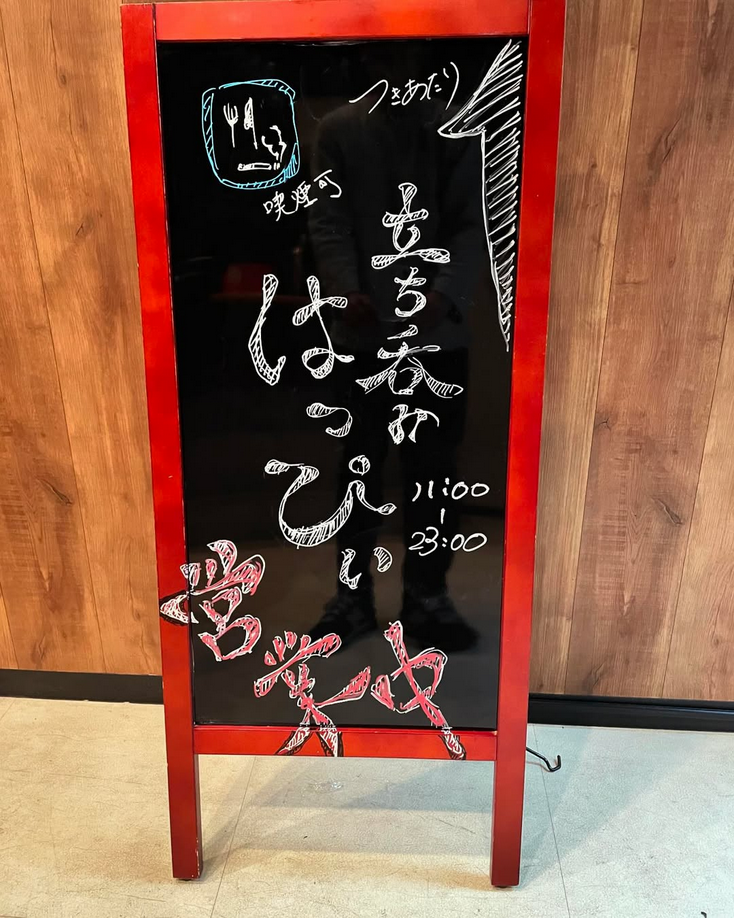 つきあたり
喫煙可
立ち呑み
はっぴぃ
11:00
|
23:00
営業中